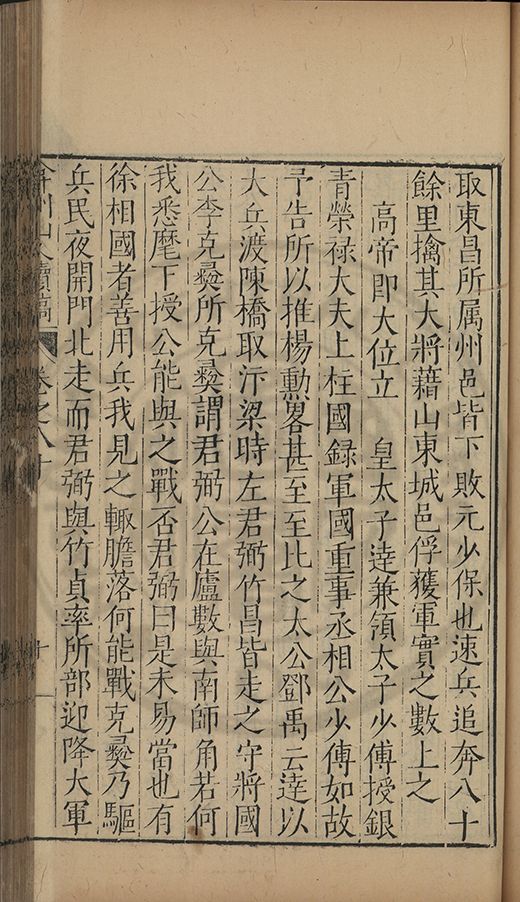 取東昌所属州邑皆下敗元少保也速兵追奔八十
餘里擒其大將藉山東城邑俘獲軍實之數上之
高帝即大位立　皇太子逹兼領太子少傅授銀
青榮禄大夫上柱國録軍國重事丞相公少傅如故
予告所以推楊勳畧甚至至比之太公鄧禹云逹以
大兵渡陳橋取汴梁時左君弼竹昌皆走之守將國
公李克彛所克彛謂君弼公在廬數與南師角若何
我悉麾下授公能與之戰否君弼曰是未易當也有
徐相國者善用兵我見之輙膽落何能戰克彛乃驅
兵民夜開門北走而君弼與竹貞率所部迎降大軍
弇州山人續稿　卷之八十　十